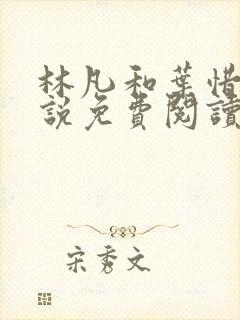 林凡和葉惜
說免費閱讀
宋秀文